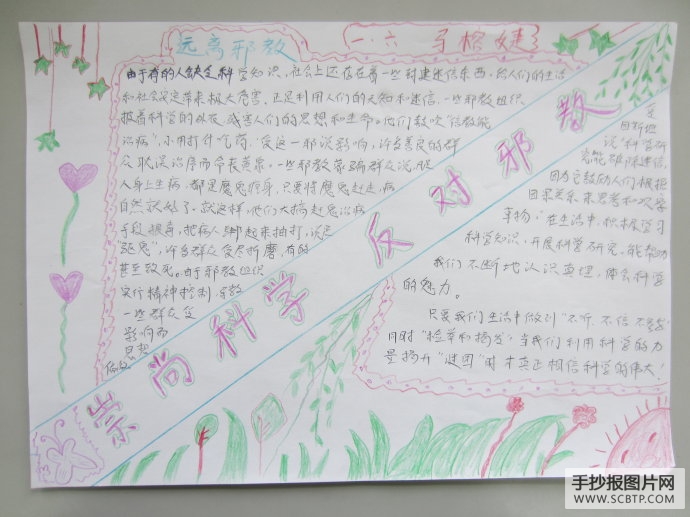 远离邪教
一.六 马榕婕
由于有的人缺乏科学知识,社会上还存在着一些封建迷信东西,给人们的生活
和社会安定带来极大危害。正是利用人们的无知和迷信,一些邪教组织
披着科学的外衣,残害人们的思想和生命。他们鼓吹“信教能
治病”,不用打针吃药。受这一邪说影响,许多善良的群
众耽误治疗而命丧黄泉。一些邪教蒙骗群众说,
人身上生病,都是魔鬼附身,只要将魔鬼赶走,病
自然就好了。就这样,他们大搞赶鬼治病
手段狠毒,把病人绑起来抽打,说是
“驱鬼”,许多群众受尽折磨,有的
甚至致死。由于邪教组织
实行精神控制,
一些群众受
影响而
崇尚科学 反对邪教
说“科学研
究能破除迷信,
因为它鼓励人们根据
因果关系来思考和观察
事物。”在生活中,积极学习
科学知识,开展科学研究,能帮助
我们不断地认识真理,体会科学
的魅力。
只要我们生活中做到“不听、不信、不
同时“检举和揭发”,当我们利用科学的力
量揭开“谜团”时才真正相信科学的伟大!
手抄报图片网
WWW.SCBTP.COM